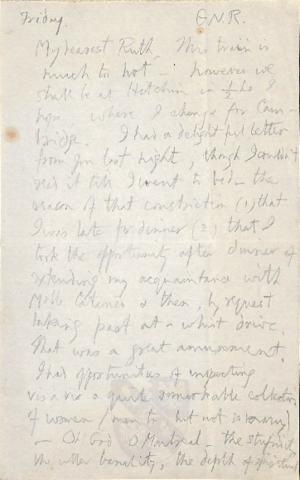 Friday. G.N.R.
My dearest Ruth This train is
much to hot – however we
shall be at Hitchin in ½ hr I
hope where I change for Cam-
bridge. I had a delightful letter
from you last night, though I couldn't
read it till I went to bed – the
reason of that constriction (1) that
I was late for dinner (2) that I
took the opportunity after dinner of
extending my acquaintance with
Mdlle & then, by request
taking part at a whist drive.
That was a great amusement.
I had opportunities of inspecting
vis à vis a quite remarkable collection
of women (men to but not so many)
– Oh God O Montreal – the stupidity,
the utter banality, the depth of spiritual